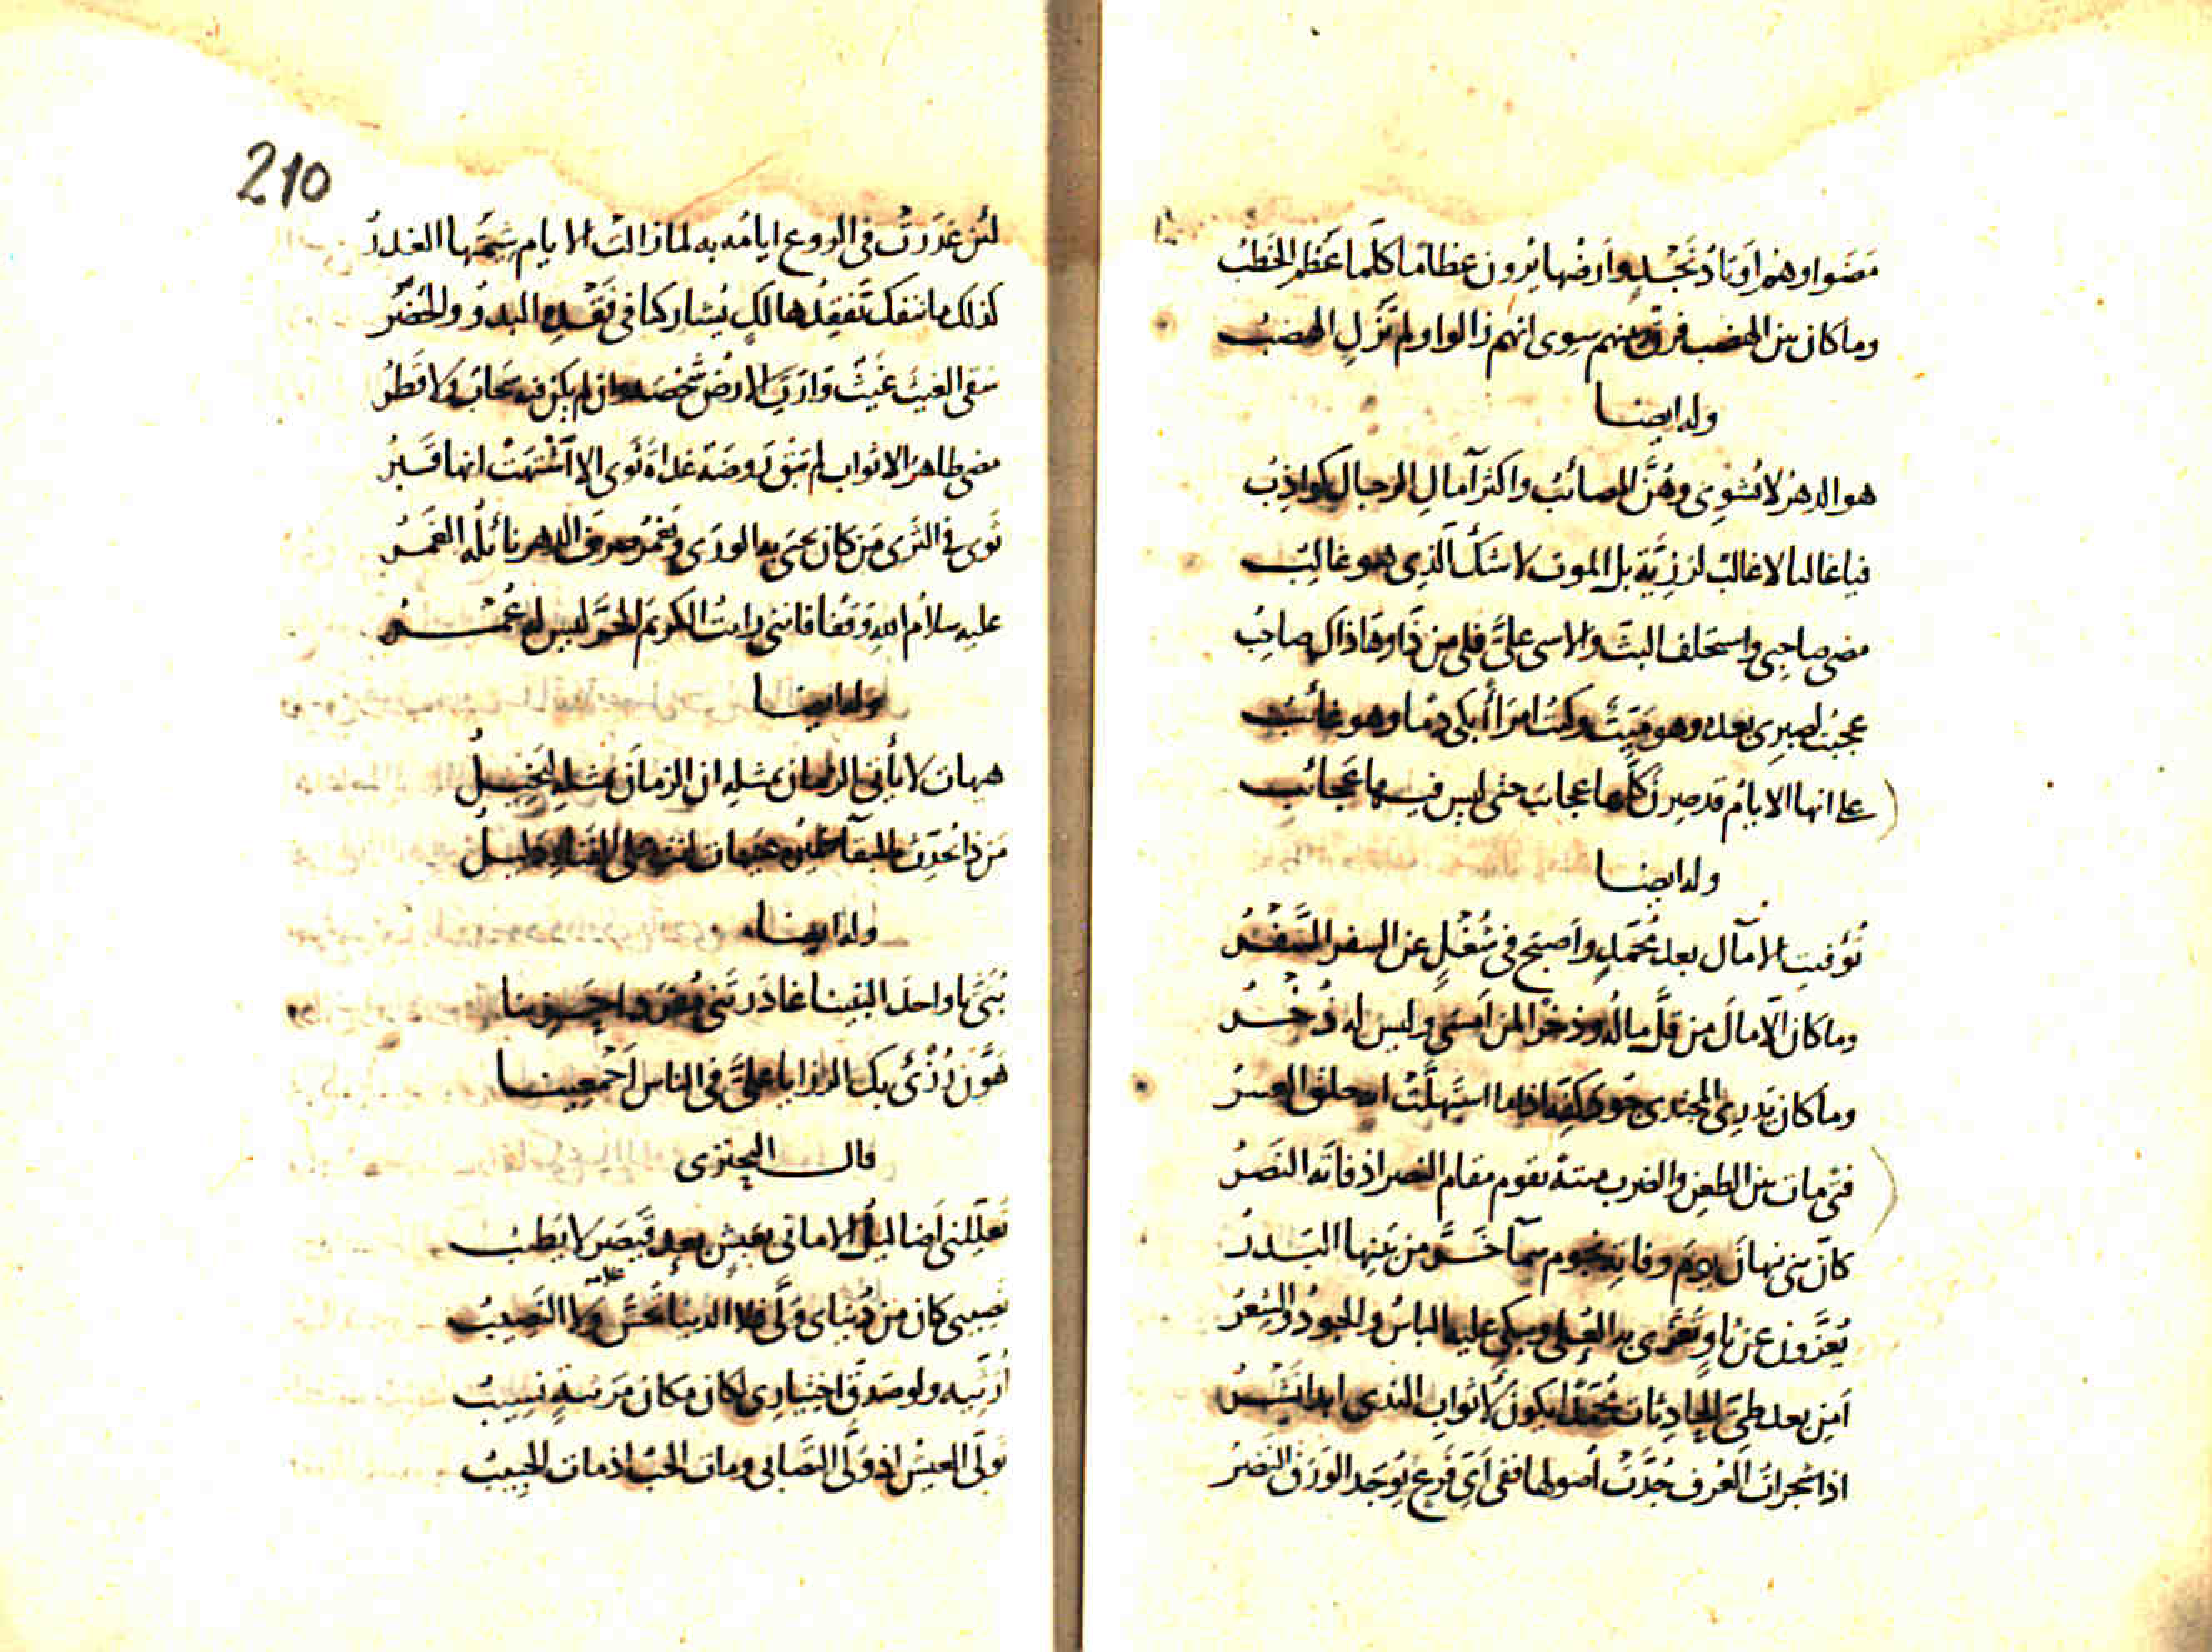 مَضَوا وهُم أَوتادُ نَجْدٍ وأَرضُها يُرون عِظامًا كلّما عَظُم الخَطبُ
وما كان بين الهضب فرق وبينهم سِوى انهم زالوا ولم تَزُلِ الهضبُ
وله ايضا
هو الدهرُ لا يُشوِى وهُنَّ المصائبُ واكثر آمالِ الرجال كواذِبُ
فيا غالبا لا غالبٌ لرزيَّةٍ بل الموت لا شكَّ الّذِى هو غالِبُ
مضى صاحِبى واستخلف البثّ والاسى علىَّ فلى من ذا وهَاذاك صاحِبُ
عجبتُ لصبرى بعده وهو مَيِّتٌ وكنتُ امرَأً أبكى دمًا وهو غائبُ
على انها الايامُ قد صِرن كلُّها عجائبَ حتى ليس فيها عَجائبُ
وله ايضا
تُوُفِّيتِ الآمال بعد محمّدٍ وأصبح فى شُغْلٍ عن السفر السَّفْرُ
وما كان الّا مالَ من قَلَّ مالُه وذخرًا لمن أمسَى وليس له ذُخْرُ
وما كان يَدرِى المجتدى جُودَ كفِّه اذا ما استَهلَّتْ انه خلق العسرُ
فتًى مات بين الطعنِ والضرب ميتةً تقوم مقام النصر اذ فاته النَصرُ
كأنّ بنى نبهانَ يومَ وفاته نجوم سمآءٍ خَرَّ من بينها البَدرُ
يُعَزَّون عن ثاوٍ تُعَزَّى به العُلى ويبكى عليه الباسُ والجودُ والشِعرُ
أمِن بعد طىِّ الحادِثات مُحمَّدًا يكون لأثوابِ الندى ابدا نَشْرُ
اذا شجراتُ العُرف جُذَّتْ أصولها ففى أىِّ فرعٍ يُوجَد الورَق النَضرُ
210
لئن غدَرتْ فى الروع ايامُه به لما زالت الايام شيمتُها الغدرُ
كذلك ما ننفكّ نَفقِدُ هالكا يُشاركنا فى فَقْدِه البدوُ والحُضرُ
سَقى الغيثُ غيثًا وارَتِ الارضُ شخصَه وان لم يكن فيه سَحابٌ ولا قَطرُ
مضى طاهرَ الاثواب لم تبقَ روضةٌ غداةَ ثَوى الا اشتهَتْ انها قَبرُ
ثَوى فى الثَرى مَن كان يحيى به الورَى ويَغمُر صرفَ الدهر نائلُه الغَمرُ
عليه سلامُ اللهِ وَقفًا فاننى رايتُ الكريمَ الحرَّ ليس له عُمْرُ
وله ايضا
هيهات لا يأتى الزمان بمثلِه ان الزمانَ بمثلِه لبَخِيلُ
وله ايضا
بُنَىَّ يا واحدَ البنينا غادَرتَنى مُفرَدا حَزِينا
هوَّن رُزْئى بك الرزايا علىَّ فى الناس أجمعِينا
قال البحترى
تُعلِّلنى أضاليلُ الامانى بعَيشٍ بعد قَيصَرَ لا يَطيبُ
نصِيبى كان من دُنياى وَلّى فلا الدنيا تُحَسُّ ولا النَصِيبُ
أرثّيه ولو صَدَق اختيارى لكان مكانَ مَرثيةٍ نسِيبُ
تولّى العيشُ اذ وَلّى التَّصابى ومات الحبّ اذ مات الحبيبُ